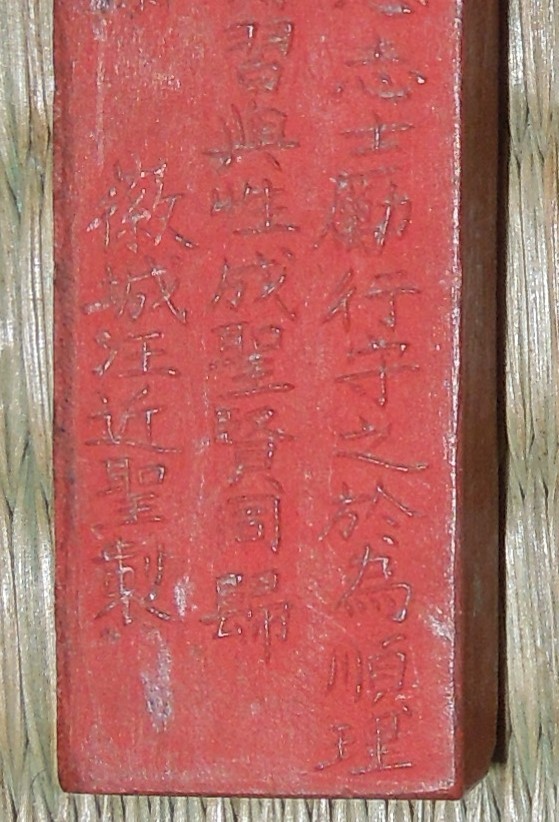 志士勵行守之於為順理
習與性成聖賢同歸
徽城汪近聖製